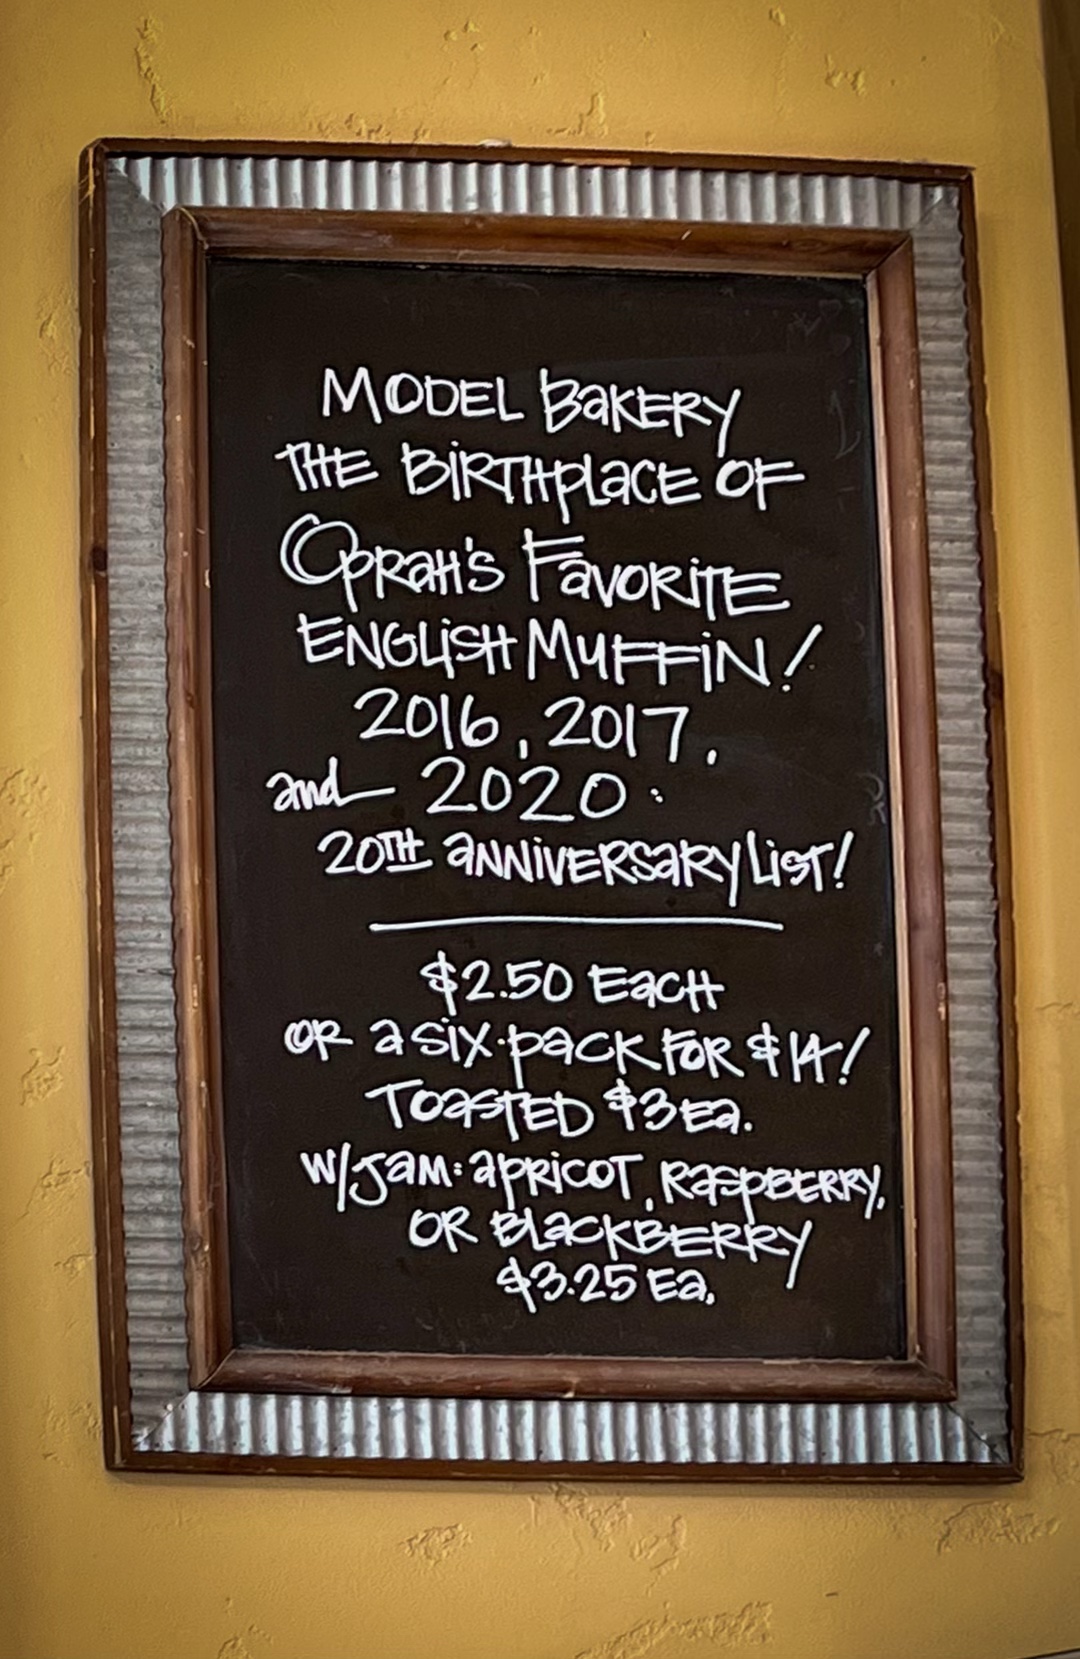 MODEL BaKERY
THE BiRTHPLaCE OF
OPRaH'S FaVORiTE
ENGLiSH MUFFiN!
2016, 2017,
and 2020:
20TH aNNiVERSaRY LiST!
$2.50 EacH
OR a Six-PacK FOR $14!
TOaSTED $3 Ea.
W/JaM: aPRiCOT, RaSPBERRY,
OR BLaCKBERRY
$3.25 Ea.